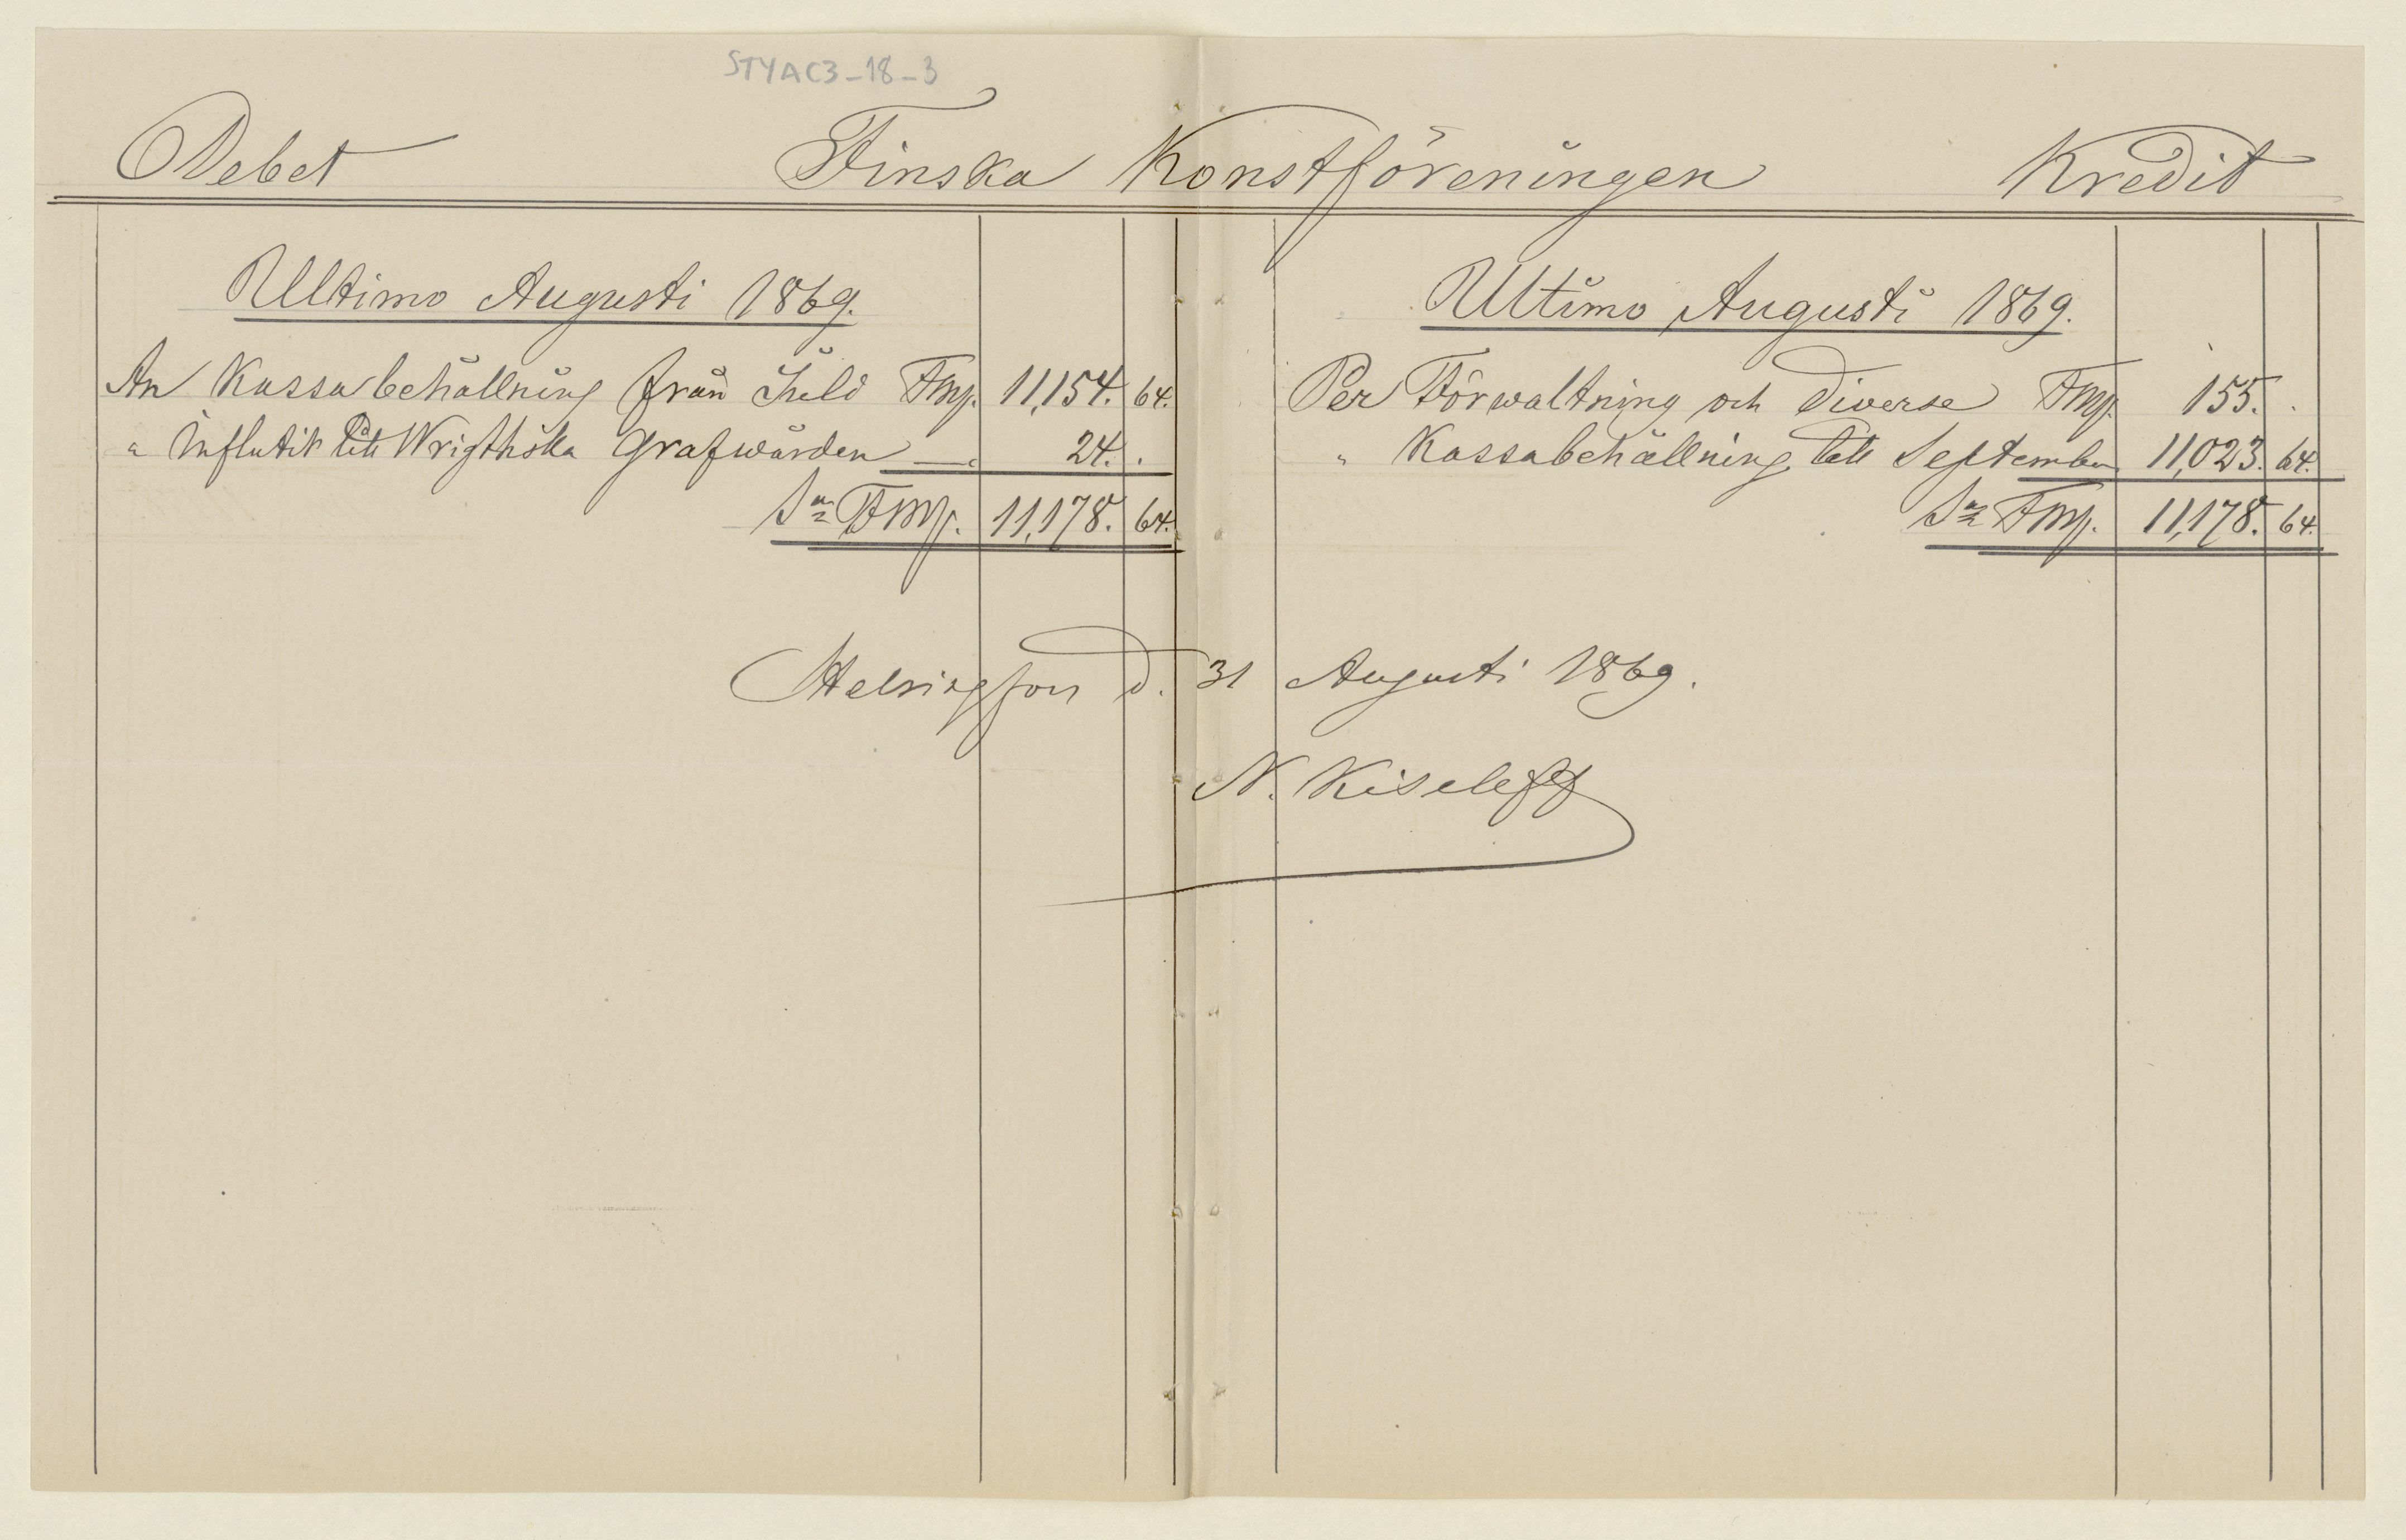 STYAC3-18-3
Debet Finska Konstföreningen Kredit
Ultimo Augusti 1869.
An Kassabehållning från Juli Fmk. 11,154. 64.
" Influtit till Wrigthska Grafwården — " 24. .
Sa Fmk. 11,178. 64.
Ultimo Augusti 1869.
Per Förwaltning och diverse Fmk. 155. .
" Kassabehållning till September 11,023. 64.
Sa Fmk. 11,178. 64.
Helsingfors d. 31 Augusti 1869.
N. Kiseleff